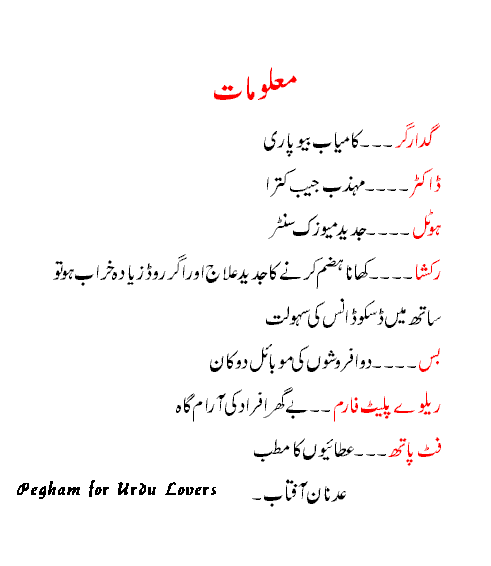 معلومات
گدارگر ۔۔۔کامیاب بیوپاری
ڈاکٹر ۔۔۔۔مہذب جیب کترا
ہوٹل ۔۔۔۔جدید میوزک سنٹر
رکشا۔۔۔۔کھانا ہضم کرنے کا جدید علاج اور اگر روڈ زیادہ خراب ہو تو
ساتھ میں ڈسکو ڈانس کی سہولت
بس۔۔۔۔دوا فروشوں کی موبائل دوکان
ریلوے پلیٹ فارم ۔۔بے گھر افراد کی آرام گاہ
فٹ پاتھ۔۔۔عطائیوں کا مطب
عدنان آفتاب ۔
Pegham for Urdu Lovers